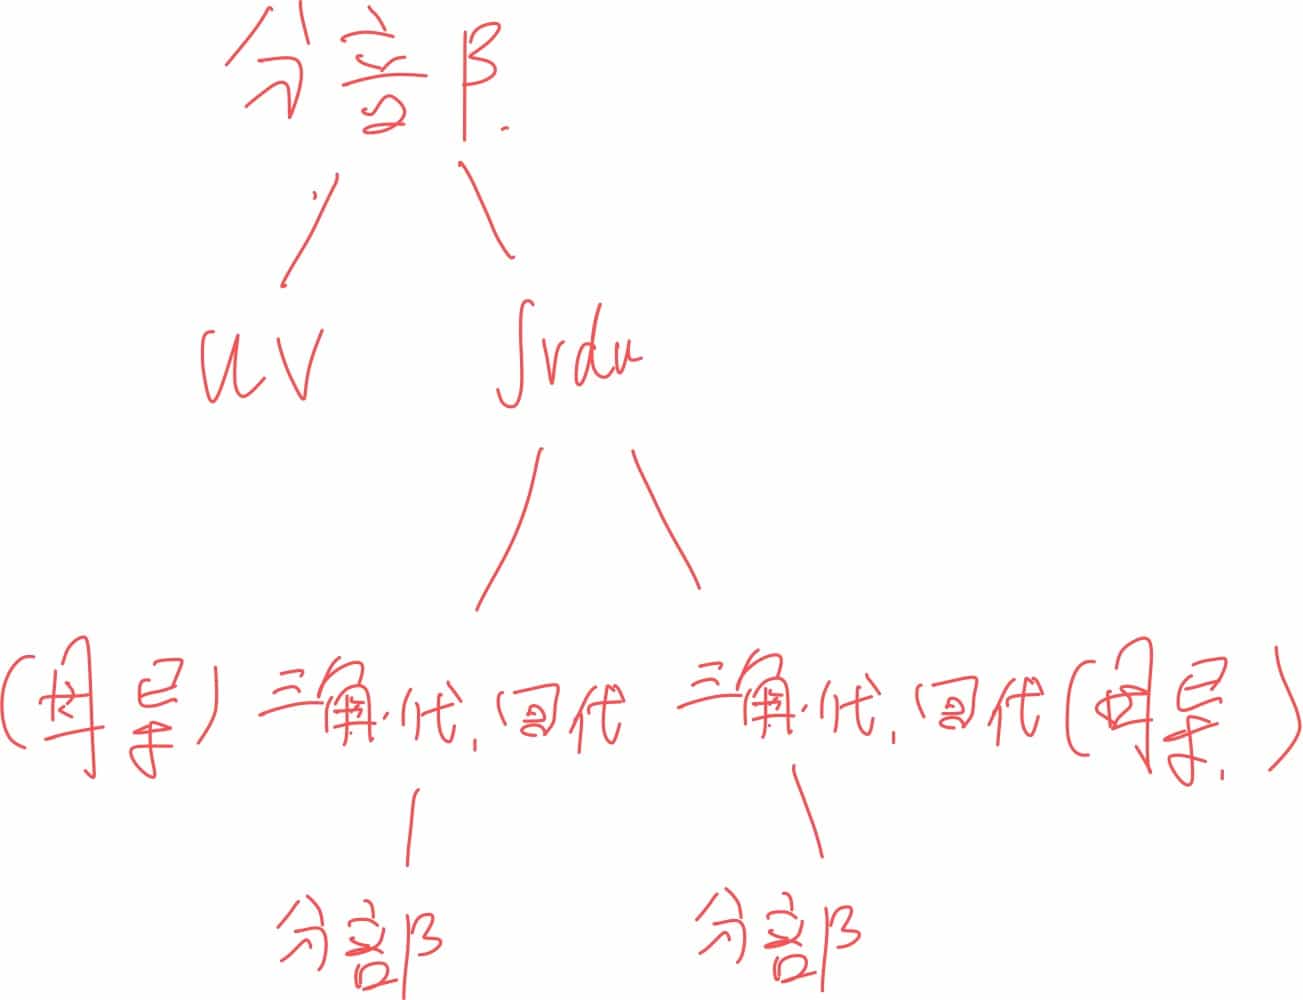 分部.
uv ∫vdu
(用导) 三角代,回代 三角代,回代 (用导.)
分部 分部